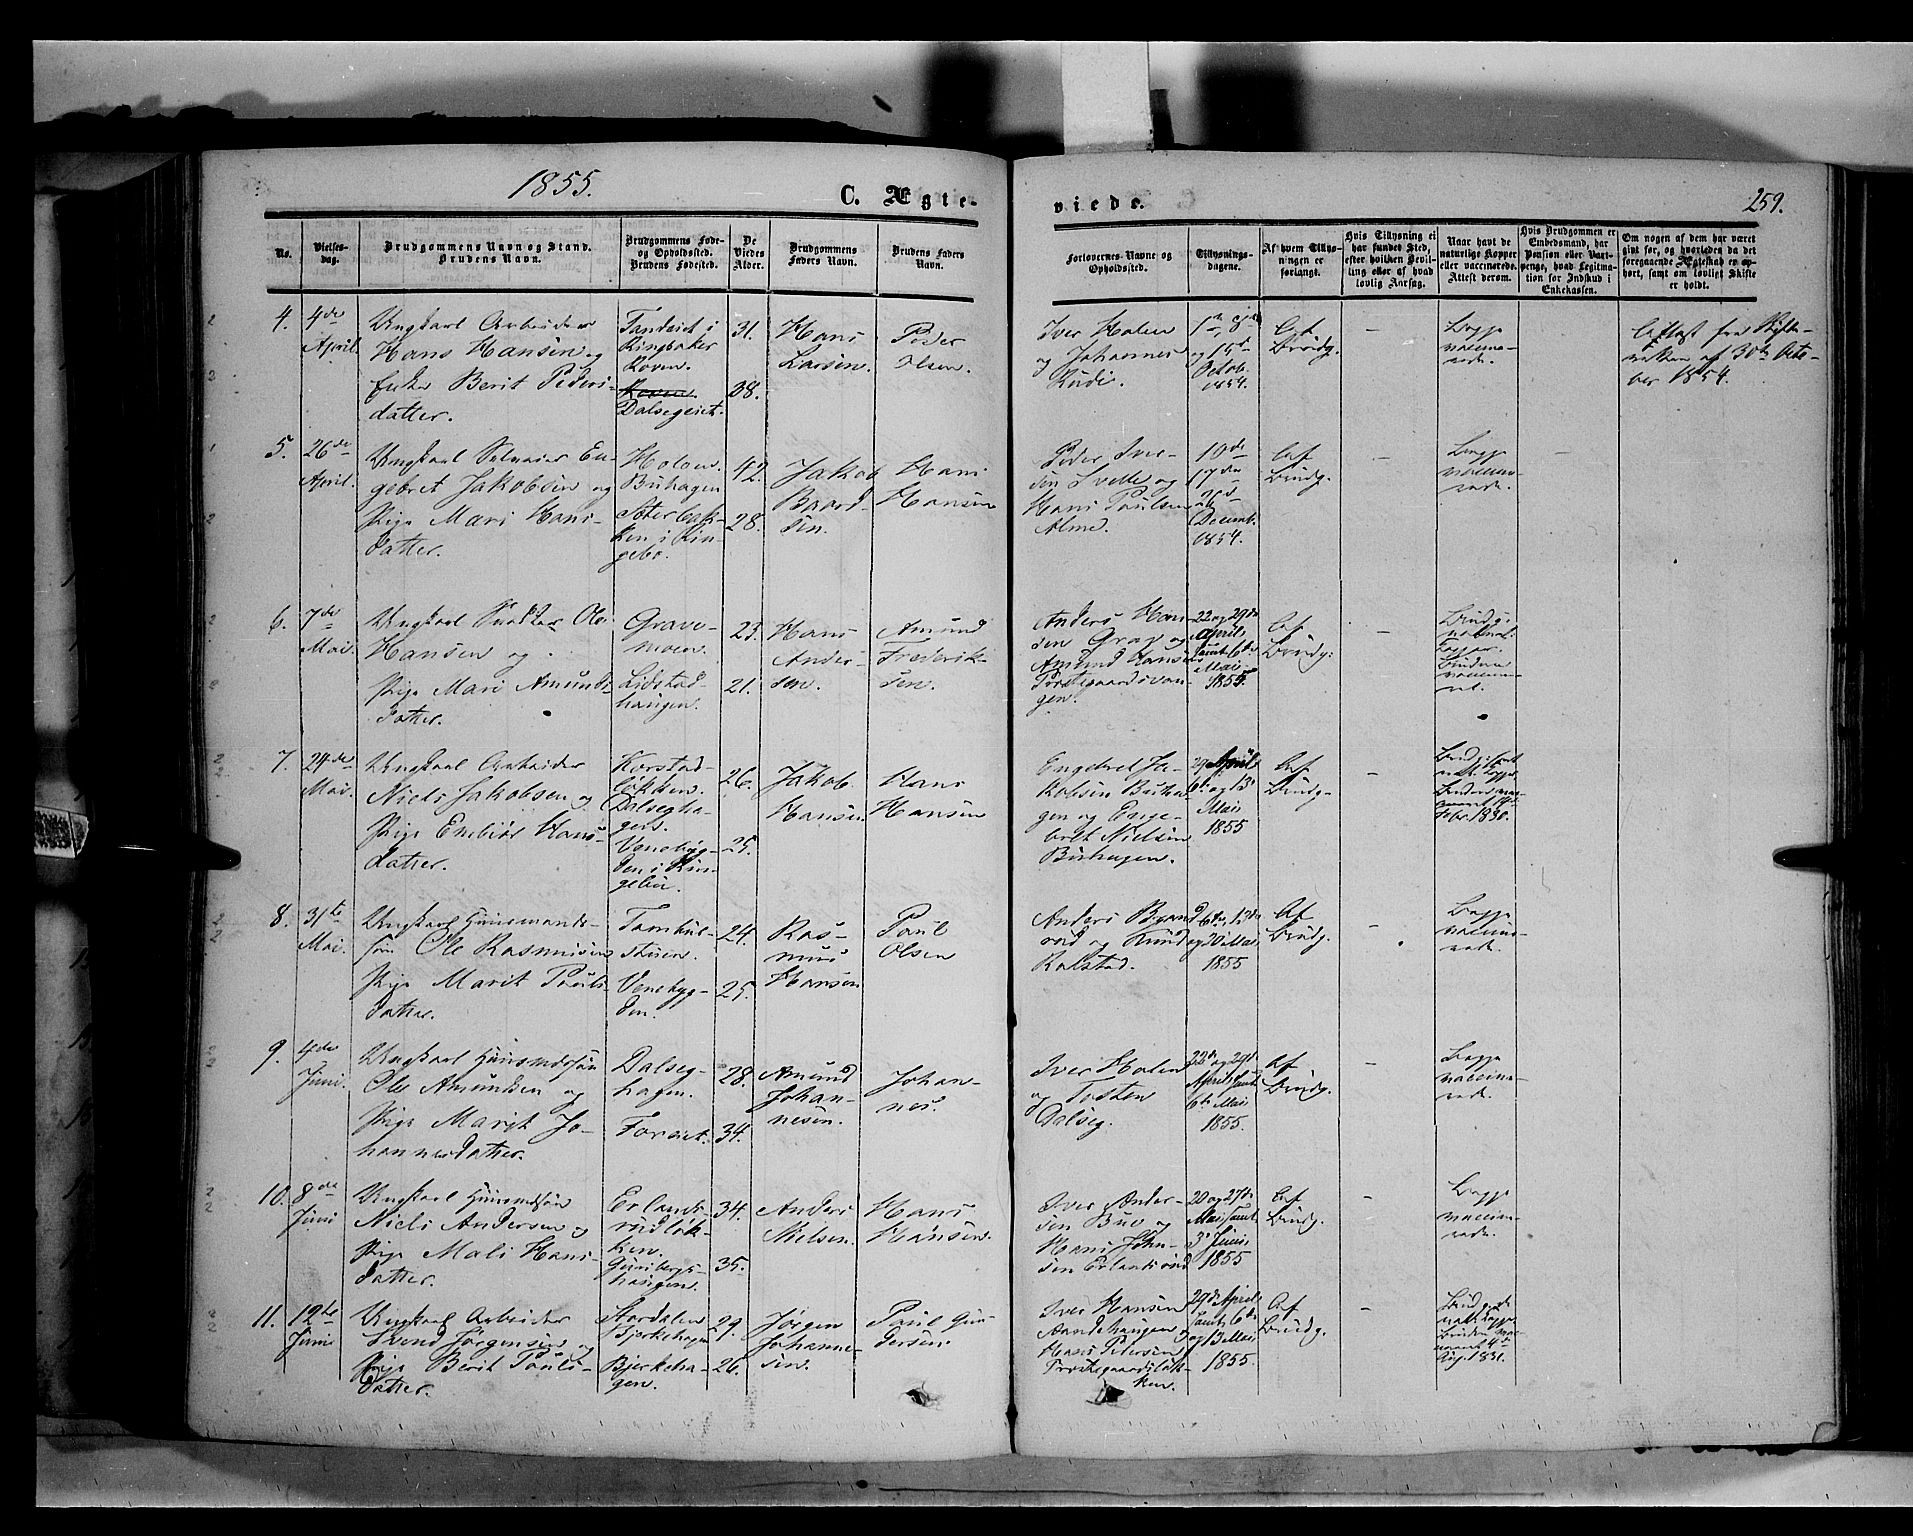 1855.
C. Ægte-
viede.
259.
No.
Vielses-
dag.
Brudgommens Navn og Stand.
Brudens Navn.
Brudgommens Føde-
og Opholdssted.
Brudens Fødested.
De
Viedes
Alder.
Brudgommens
Faders Navn.
Brudens Faders
Navn.
Forlovernes Navne og
Opholdssted.
Tillysnings-
dagene.
Af hvem Tillys-
ningen er
forlangt.
Hvis Tillysning ei
har fundet Sted,
efter hvilken Bevil-
ling eller af hvad
lovlig Aarsag.
Naar havt de
naturlige Kopper
eller vaccinerede.
Attest derom.
Hvis Brudgommen er
Embedsmand, har
Pension eller Vart-
penge, hvad Legitima-
tion for Indskud i
Enkekassen.
Om nogen af dem har været
gift før, og hvorledes da det
foregaaende Ægteskab er op-
hørt, samt om lovligt Skifte
er holdt.
4.
4de
April.
Ungkarl Arbeider
Hans Hansen og
Enke Berit Peders-
datter.
Ringsaker
Dalsegeiet.
31.
38.
Hans
Larsen.
Peder
Olsen.
Iver Holen
og Johannes
Rudi.
1ste, 8de
og 15de
Octob.
1854.
Af
Brudg.
-
Begge
vaccine-
rede.
Attest fra Skifte-
retten af 30te Octo-
ber 1854.
5.
26de
April.
Ungkarl Selveier En-
gebret Jakobsen og
Pige Mari Hans-
datter.
Holen.
Buhagen
ken i Rin-
gebo.
42.
28.
Jakob
Baard-
sen.
Hans
Hansen
Peder Iver-
sen Svelle og
Hans Paulsen
Alme.
10de
17de
Decemb.
1854.
Af
Brudg.
-
Begge
vaccine-
rede.
6.
7de
Mai.
Ungkarl Snedker Ole
Hansen og
Pige Mari Amunds-
datter.
Grave-
moen.
Lidstad-
haugen.
23.
21.
Hans
Ander-
sen.
Amund
Frederik-
sen.
Anders Han-
sen Grav og
Amund Hansen
Prestegaardsvan-
gen.
22 og 29de
April
samt 6te
Mai
1855.
Af
Brudg.
-
Brudg.
naturl.
Kopper.
Bruden
vaccine-
ret.
7.
24de
Mai.
Ungkarl Arbeider
Niels Jakobsen og
Pige Enebiør Hans-
datter.
Korstad-
løkken.
Dalsegha-
gen.
Venebyg-
den i Rin-
gebu.
26.
25.
Jakob
Hansen
Hans
Hansen
Engebret Ja-
kobsen Buha-
gen og Enge-
bret Nielsen
Buhagen.
29 April
6te og 13
Mai
1855
Af
Brudg.
-
Febr. 1830.
8.
31te
Mai.
Ungkarl Huusmands-
søn Ole Rasmusen
Pige Marit Pauls-
datter.
stuen.
Venebyg-
den.
24.
25.
Ras-
mus
Hansen
Paul
Olsen
Anders Brand-
vold og Knud
Kolstad.
6te, 13de
og 20 Mai
1855
Af
Brudg.
-
Begge
vaccine-
rede.
9.
4de
Juni.
Ungkarl Huusmdssøn
Ole Amundsen og
Pige Marit Jo-
hannesdatter.
Dalseg-
hagen.
Forsiet.
28.
34.
Amund
Johan-
nesen.
Johan-
nes.
Iver Holen
og Tosten
Dalseg.
22de og 29de
April samt
6te Mai
1855.
Af
Brudg.
-
Begge
vaccine-
rede.
10.
8de
Juni
Ungkarl Huusmdssøn
Niels Andersen og
Pige Mali Hans-
datter.
Erlands-
rudløk-
ken.
Gunbergs-
haugen.
34.
35.
Anders
Nielsen.
Hans
Hansen.
Iver Ander-
sen Bue og
Hans John-
sen Erlandsrud
20 og 27de
Mai samt
3die Juni
1855
Af
Brudg.
-
Begge
vaccine-
rede.
11.
12te
Juni
Ungkarl Arbeider
Svend Jørgensen og
Pige Berit Pauls-
datter.
Bjerkehagen
Bjerkeha-
gen.
29.
26.
Jørgen
Johanne-
sen.
Paul Gun-
dersen.
Iver Hansen
Sandehaugen og
Hans Petersen
Prestegaardsløk-
ken.
29de April
samt 6te
og 13 Mai
1855.
Af
Brudg.
-
Aug. 1831.